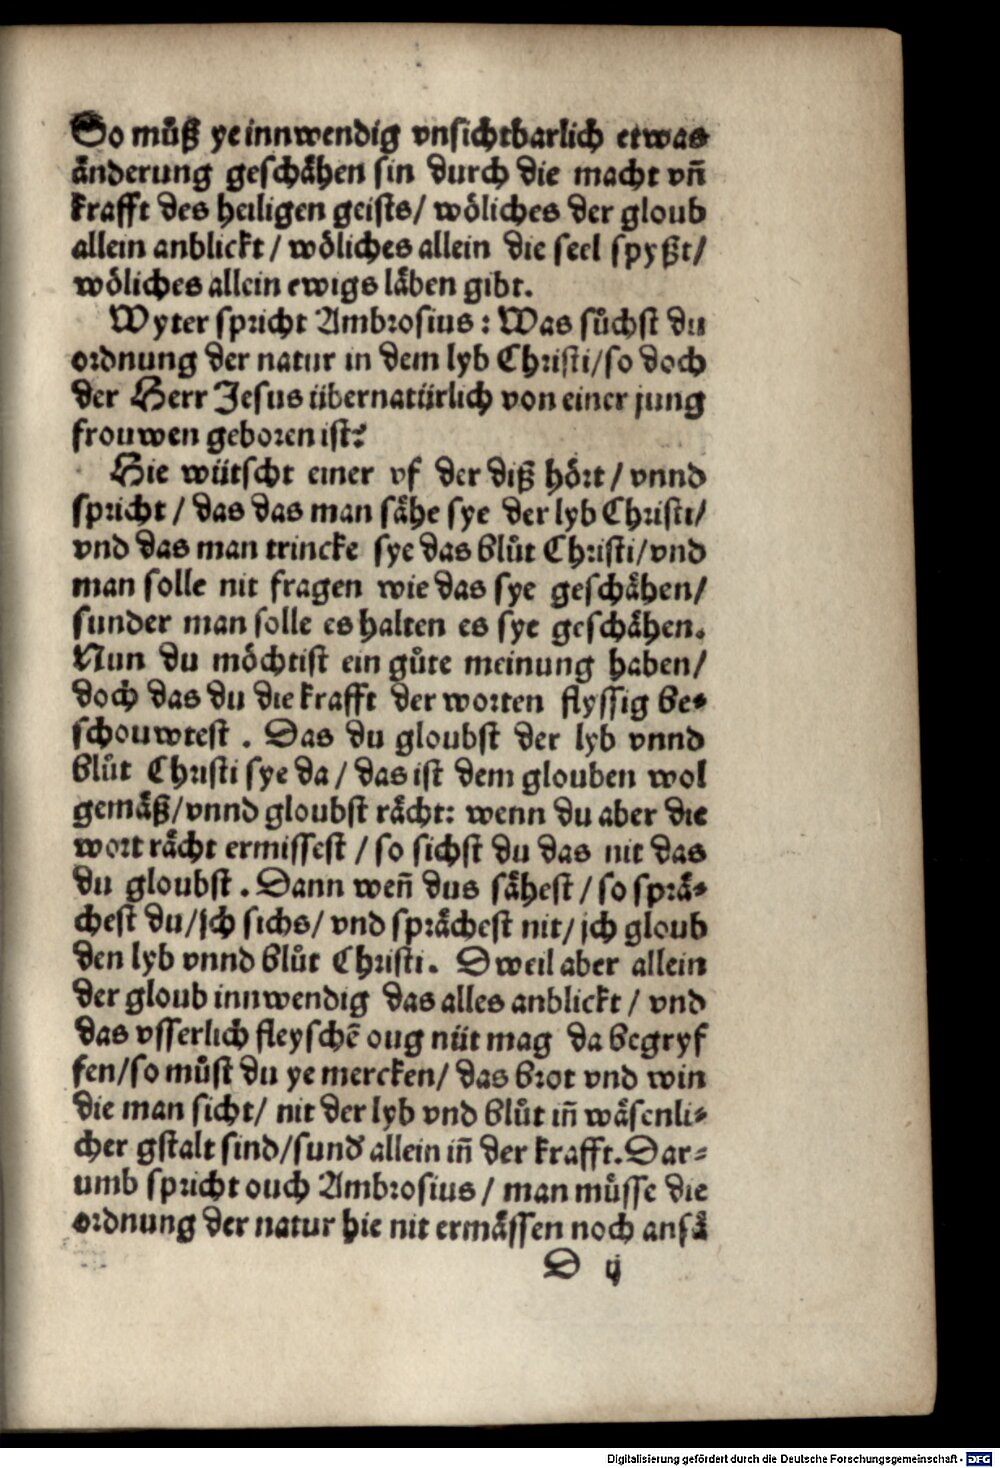 So muͦß ye innwendig vnsichtbarlich etwas
aͤnderung geschaͤhen sin durch die macht vn̄
krafft des heiligen geists/ woͤliches der gloub
allein anblickt / woͤliches allein die seel spyßt/
woͤliches allein ewigs laͤben gibt.
Wyter spricht Ambrosius: Was suͦchst du
ordnung der natur in dem lyb Christi/so doch
der Herr Jesus übernatürlich von einer jung
frouwen geboren ist?
Hie wütscht einer vf der diß hoͤrt / vnnd
spricht / das das man saͤhe sye der lyb Christi/
vnd das man trincke sye das bluͦt Christi/vnd
man solle nit fragen wie das sye geschaͤhen/
sunder man solle es halten es sye geschaͤhen.
Nun du moͤchtist ein guͦte meinung haben/
doch das du die krafft der worten flyssig be⸗
schouwtest . Das du gloubst der lyb vnnd
bluͦt Christi sye da / das ist dem glouben wol
gemaͤß/vnnd gloubst raͤcht: wenn du aber die
wort raͤcht ermissest / so sichst du das nit das
du gloubst . Dann wen̄ dus saͤhest / so spraͤ⸗
chest du/jch sichs/ vnd spraͤchest nit/ jch gloub
den lyb vnnd bluͦt Christi. Dweil aber allein
der gloub innwendig das alles anblickt / vnd
das vsserlich fleyschē oug nüt mag da begryf
fen/so muͦst du ye mercken/ das brot vnd win
die man sicht/ nit der lyb vnd bluͦt in̄ waͤsenli⸗
cher gstalt sind/sund' allein in̄ der krafft. Dar⸗
umb spricht ouch Ambrosius / man muͤsse die
ordnung der natur hie nit ermaͤssen noch ansaͤ
D ij
Digitalisierung gefördert durch die Deutsche Forschungsgemeinschaft - DFG